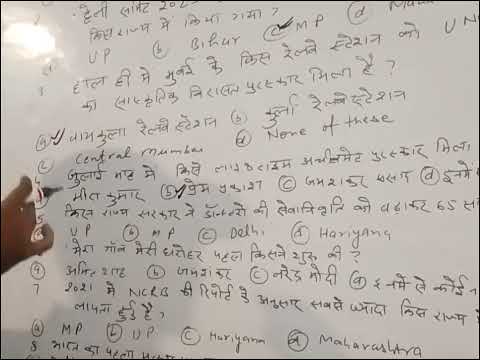 हैली समिट 202
किस राज्य में किया गया?
UP (b) Bihar (c) MP (d) Maha
हाल ही में मुंबई के किस रेलवे स्टेशन को UN
का सांस्कृतिक विरासत पुरस्कार मिला है?
(a) बायकुला रेलवे स्टेशन (b) कुर्ला रेलवे स्टेशन
(c) Central mumbai (d) None of these
जुलाई माह में किसे लाइफ टाइम अचीवमेंट पुरस्कार मिला
मीरा कुमार (b) प्रेम प्रकाश (c) जयशंकर प्रसाद (d) इनमें
किस राज्य सरकार ने डॉक्टरों की सेवानिवृति को बढ़ाकर 65 सा
UP (b) MP (c) Delhi (d) Hariyana
मेरा गाँव मेरी धरोहर पहल किसने शुरू की?
(a) अमित शाह (b) जयशंकर (c) नरेंद्र मोदी (d) इनमें से कोई न
7 2021 में NCRB की रिपोर्ट के अनुसार सबसे ज्यादा किस राज्य में
लापता हुई है?
(a) MP (b) UP (c) Hariyana (d) Maharashtra
8 भारत का पहला